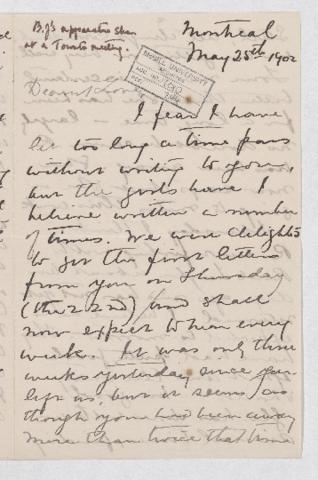 B.J's apparatus shown
at a Toronto meeting.
Montreal
May 25th 1902
McGILL UNIVERSITY
ACC. NO.
REF.
I fear I have
let too long a time pass
without writing to you,
but the girls have I
believe written a number
of times. We were delighted
to get the first letters
from you on Thursday
(the 22nd) and shall
now expect to hear every
week. It was only three
weeks yesterday since you
left us, but it seems as
though you had been away
more than twice that time